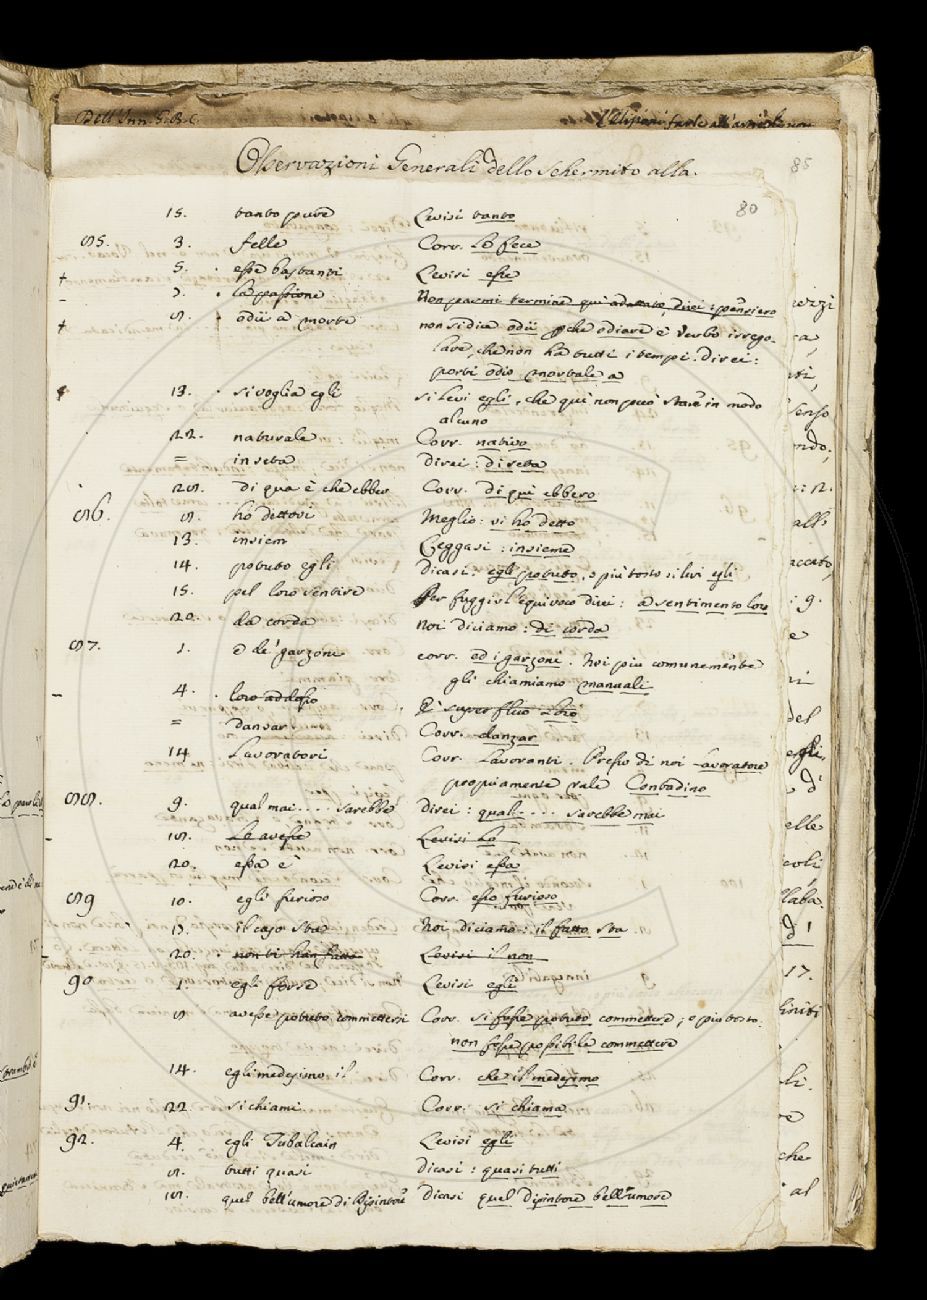 Dell'Inn. G.B.C.
Osservazioni Generali dello schermito alla.
85
80
15. tanto pure Levisi tanto
85. 3. felle Corr. Lo fece
+ 5. esse bastanti Levisi esse
- 7. la passione Non parmi termine qui adattato, direi: pensiero
+ 8. odii a morte non si dice odii pche odiare è Verbo irrego-
lare, che non ha tutti i tempi. direi:
porti odio mortale a
13. si voglia egli si Levi egli, che qui non può stare in modo
alcuno
22. naturale Corr. nativo
= in seta direi: di seta
28. di qua è che ebber Corr. di quì ebbero
86. 8. ho dettovi Meglio: vi ho detto
13. insiem Leggasi: insieme
14. potuto egli dicasi: egli potuto, o più tosto si levi egli
15. pel loro sentire Per fuggir l'equivoco direi: a sentimento loro
20. da corda Noi diciamo: di corda
87. 1. e de' garzoni corr. ed i garzoni. Noi più comunemente
gli chiamiamo manuali
- 4. loro addosso È superfluo Loro
= dansar Corr. danzar
14 Lavoratori Corr. Lavoranti. Presso di noi Lavoratore
propriamente vale Contadino
88. 9. qual mai.... sarebbe Direi: qual.... sarebbe mai
- 18. Lo avesse Levisi Lo
20. essa è Levisi essa
89 10. egli furioso Corr. esso furioso
13. il caso sta Noi diciamo: il fatto sta
- 20. non ti han fatto Levisi il non
90 1. egli forse Levisi egli
8 avesse potuto commettersi Corr. si fosse potuto commettere; o più tosto.
non fosse possibile commettere
14. egli medesimo il Corr. che il medesimo
91. 22. si chiami Corr. si chiama
92. 4. egli Tubalcain Levisi egli
8. tutti quasi dicasi: quasi tutti
18. quel bell'umore di Dipintore dicasi quel dipintore bell'umore